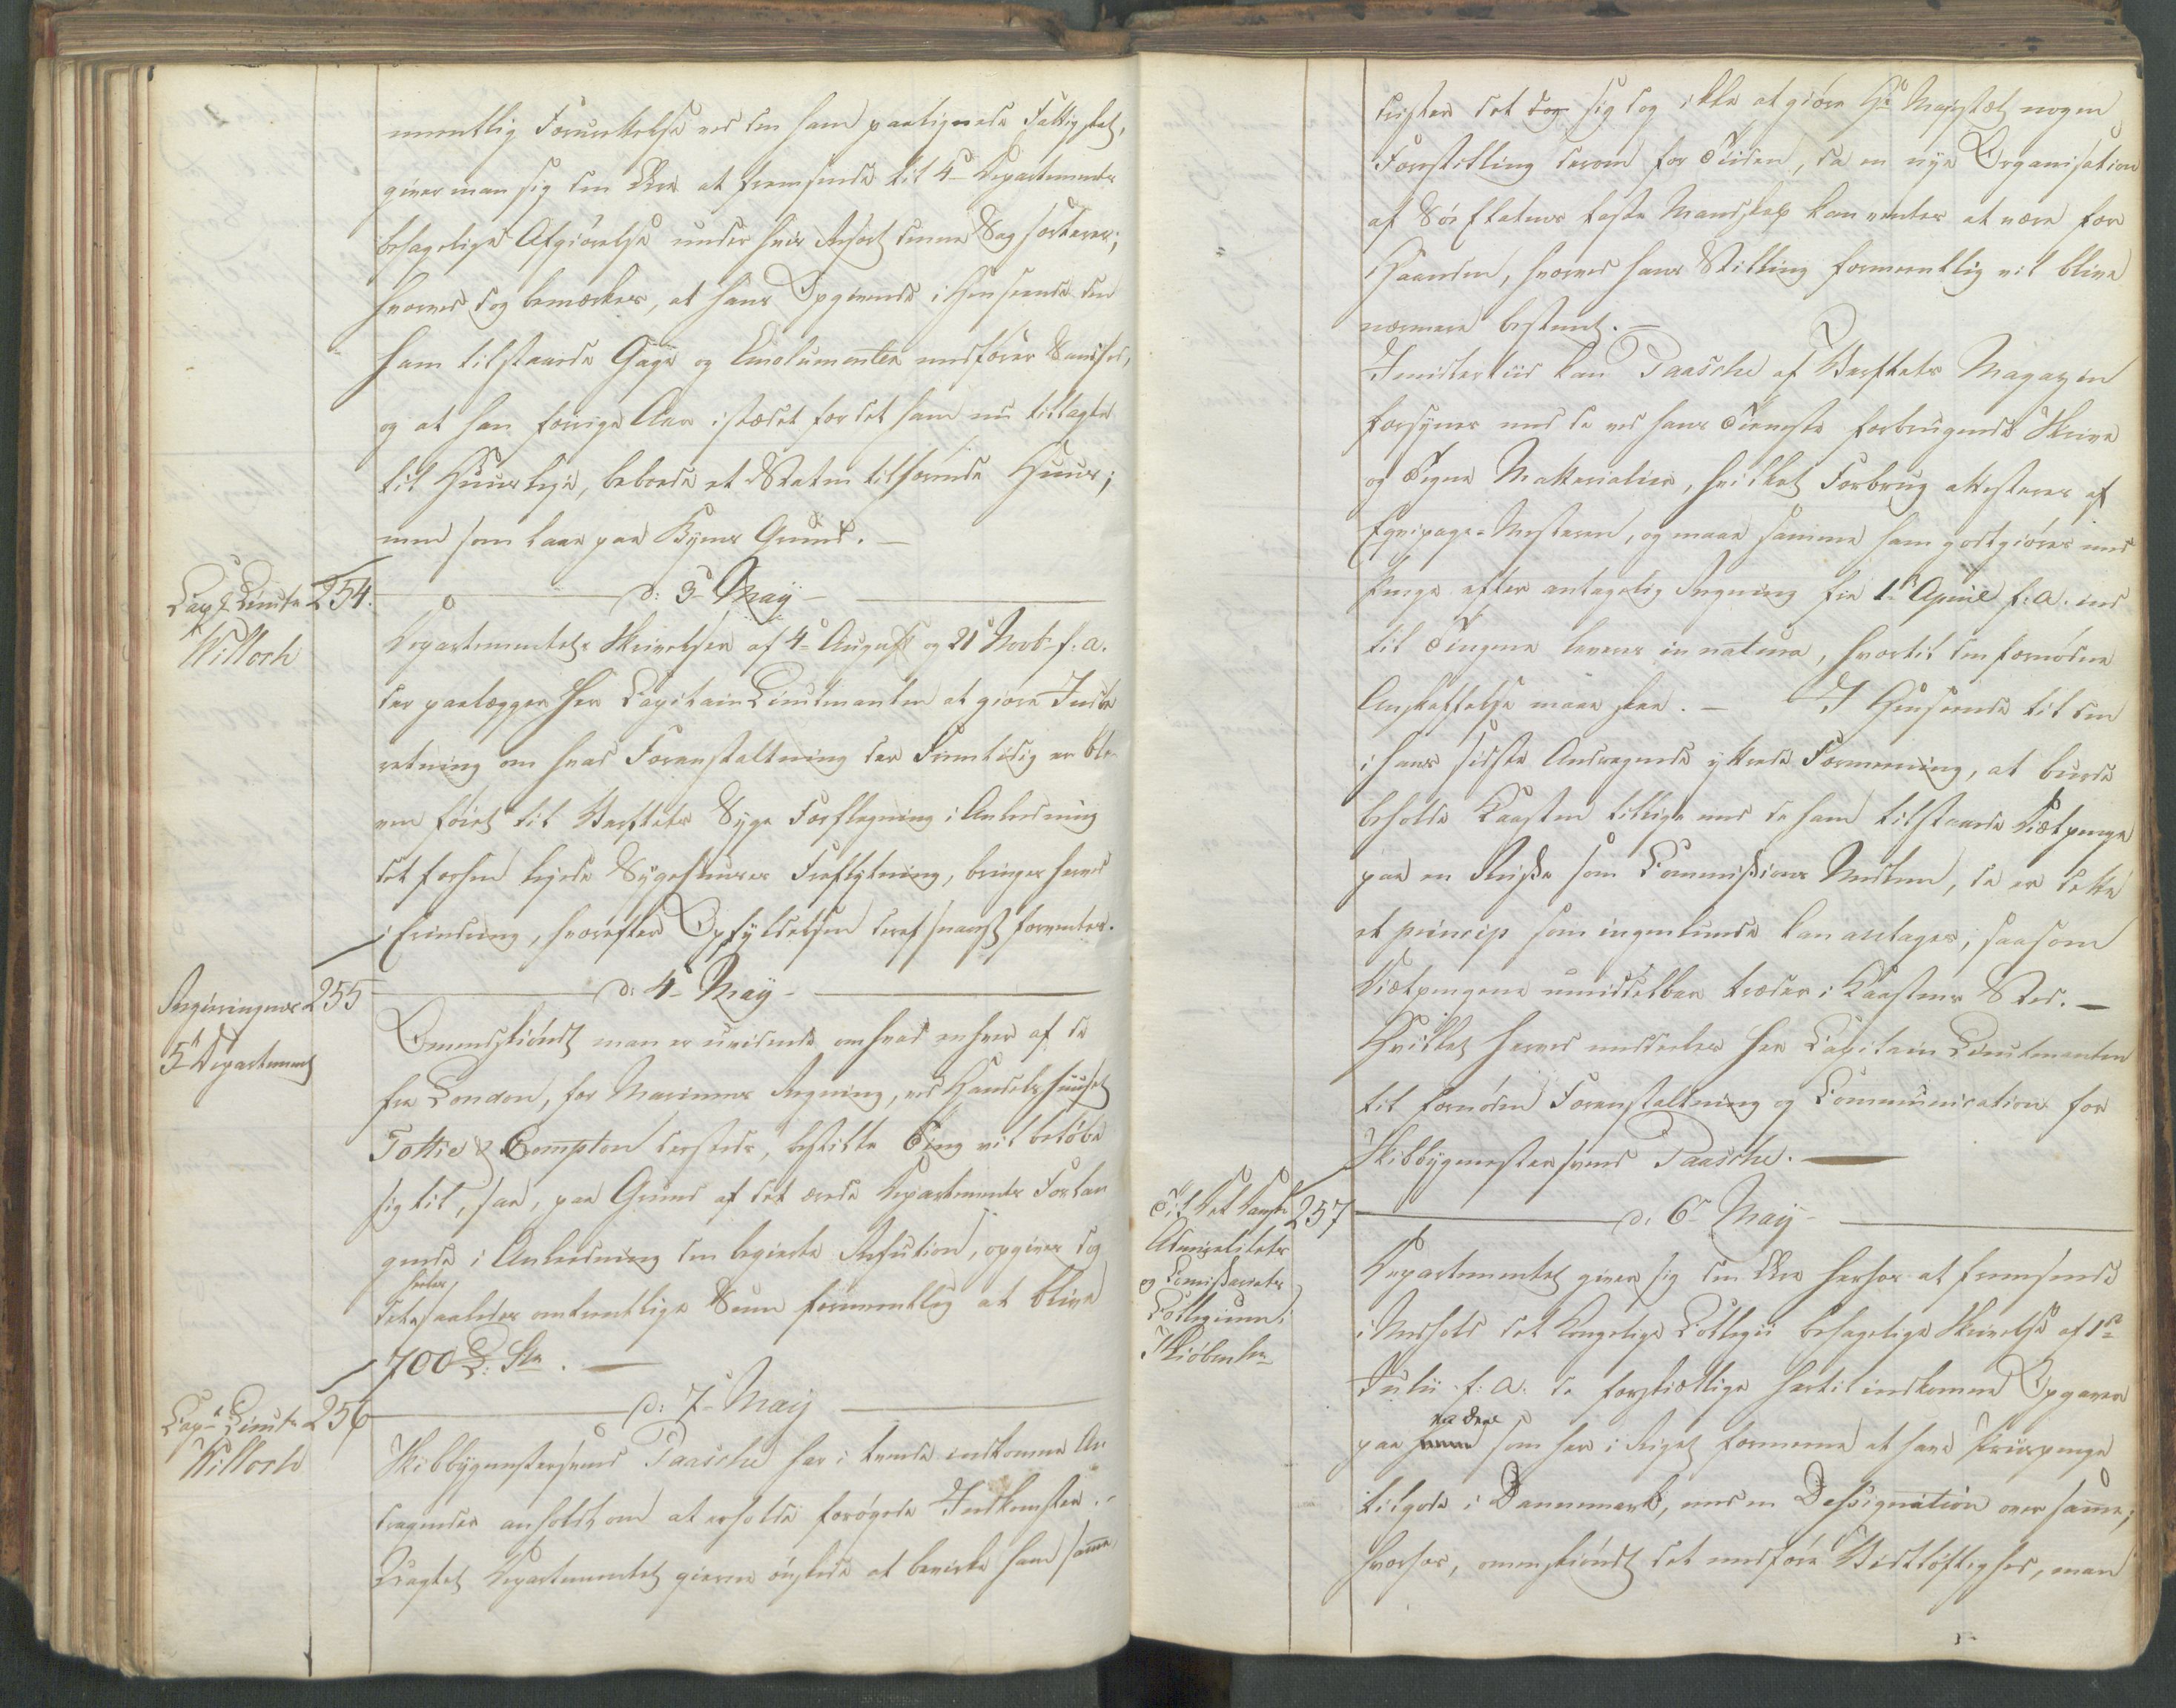 mentlig Forurettelse ved den ham paalignede Fattigskat,
giver man sig den Ære at fremsende til 4de Departements
behagelige Afgiörelse under hvis Resort denne Sag sorterer;
hvorved dog bemærkes, at hans Opgivende i Henseende den
ham tilstaaede Gage og Emolumenter medförer Sandhed,
og at han forrige Aar istædet for det ham nu tillagte
til Huusleje, beboede et Staten tilhörende Huus;
men som laae paa Byens Grund. —
Capt Lieutn
Willoch
254.
d: 3d May
Departementets Skrivelser af 4de August og 21 Novbr f: a.
der paalægger Herr Capitain Lieutenanten at giøre Indbe
retning om hvad Foranstaltning der Fremtidig er ble
ven föiet til Værftets Syge Forflegning i Anledning
det forhen lejede Sygehuuses Fraflytning, bringes herved
i Erindring, hvorefter Opfyldelsen deraf snarest forventes.
Regieringens
5te Departement
255
d: 4d May
Omendskiöndt man er uvidende om hvad enhver af de
fra London, for Marinens Regning, ved Handelshuuset
Tottie & Compton dersteds, bestilte Ting vil belöbe
sig til, saa, paa Grund af det ærede Departements Forlan
gende i Anledning den begierte Refution, opgives dog
heele
det saaledes omtrentlige Sum formeentlig at blive
700 £: Str. —
Capt Lieutn
Willoch
256
d: 7d May
Skibbygmestersvend Paasche har i tvende indkomne An
dragender anholdt om at erholde forögede Indkomster. —
Uagtet Departementet gierne önskede at bevirke ham samme
drister det dog sig dog ikke at giöre Hs Majestæt nogen
Forestilling derom for Tiden, da en nye Organisation
af Söe Etatens faste Mandskap kan ventes at være for
Haanden, hvorved hans Stilling formeentlig vil blive
nærmere bestemt. —
Imidlertiid kan Paasche af Værftets Magazin
forsynes med de ved hans Tieneste forbrugende Skrive
og Tegne Matterialier, hvilket Forbrug attesteres af
Eqvipage-Mesteren, og maae samme ham godtgiöres med
Penge efter antagelig Regning fra 1ste April f: a. ind
til Tingene leveres in natura, hvortil den fornödne
Anskaffelse maae skee. — I Henseende til den
i hans sidste Andragende yttrede Formening, at burde
beholde Kaasten tillige med de ham tilstaaede Diætpenge
paa en Reise som Commissions Medlem, da er dette
et princip som ingenlunde kan antages, saasom
Diætpengene umiddelbar træder i Kaastens Sted. —
Hvilket herved meddeeles Herr Capitain Lieutenanten
til fornöden Foranstaltning og Communication for
Skibbygmestersvend Paasche. —
Til Det danske
Admiralitets
og Comissariats
Collegium i
Kiöbenhn
257
d: 6te May
Departementet giver sig den Ære herhos at fremsende
i Medhold det Kongelige Collegii behagelige Skrivelse af 1ste
Julii f: a. de forskiællige hertil indkomne Opgaver
fra Deel
paa som her i Riget formeene at have Priispenge
tilgode i Dannemark, med en Designation over samme;
hvorhos, omendskiöndt det medföre Vidtlöftighed, man